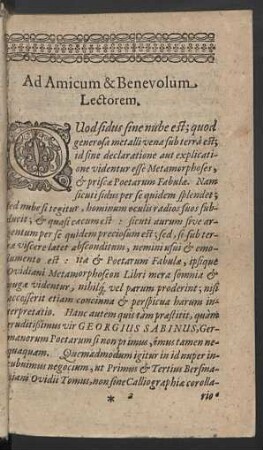 Ad Amicum & Benevolum
Lectorem.
QUod sidus sine nube est; quod
generosa metalli vena sub terrâ est;
id sine declaratione aut explicati-
one videntur esse Metamorphoses,
& priscæ Poetarum Fabulæ. Nam
sicuti sidus per se quidem splendet;
sed nube si tegitur, hominum oculis radios suos sub-
ducit, & quasi cæcum est: sicuti aurum sive ar-
gentum per se quidem preciosum est; sed, si sub ter-
ra viscere latet absconditum, nemini usui & emo-
lumento est: ita & Poetarum Fabulæ, ipsique
Ovidiani Metamorphoseon Libri mera somnia &
nugæ videntur, nihilq́; vel parum proderint; nisi
accesserit etiam concinna & perspicua harum in-
terpretatio. Hanc autem quii tàm præstitit, quàm
eruditissimus vir GEORGIUS SABINUS, Ger-
manorum Poetarum si non primus, imus tamen ne-
quaquam. Quemadmodum igitur in id nuper in-
cubuimus negocium, ut Primus & Tertius Bersma-
siani Ovidii Tomus, non sine Calliographiæ corolla-
* 2 rio